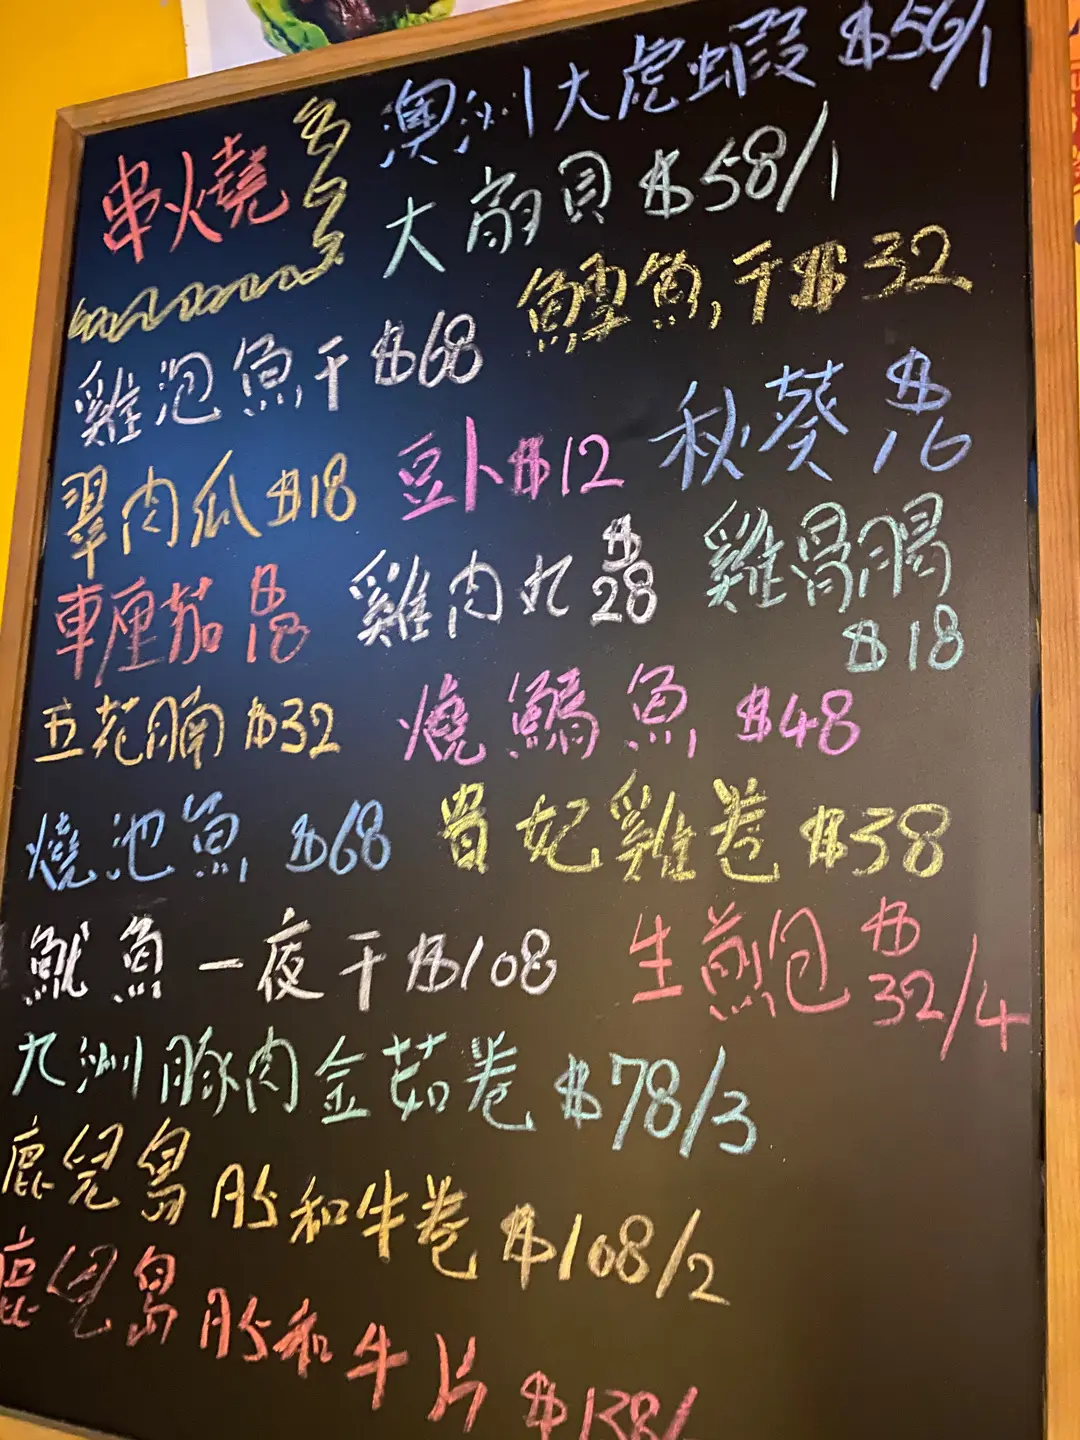 串燒 多多多
澳洲大虎蝦 $56/1
大扇貝 $58/1
魚干 $32
雞泡魚干 $68
翠肉瓜 $18
豆卜 $12
秋葵 $16
車厘茄 $18
雞肉丸 $28
雞胃腸 $18
五花腩 $32
燒鱔魚 $48
燒池魚 $68
貴妃雞卷 $38
魷魚一夜干 $108
生煎包 $32/4
九洲豚肉金菇卷 $78/3
鹿兒島A5和牛卷 $108/2
鹿兒島A5和牛片 $138/